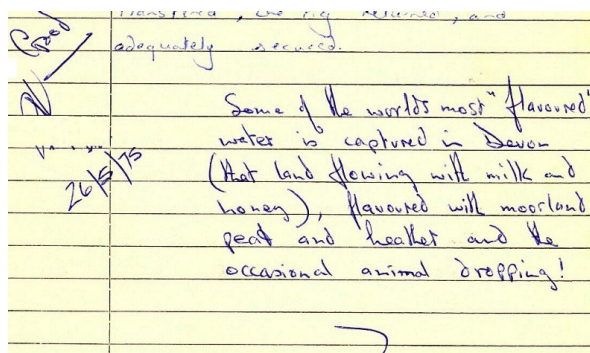 Good
adequately secured.
Some of the worlds most "flavoured"
water is captured in Devon
(that land flowing with milk and
honey), flavoured with moorland
peat and heather and the
occasional animal dropping!
26/5/75